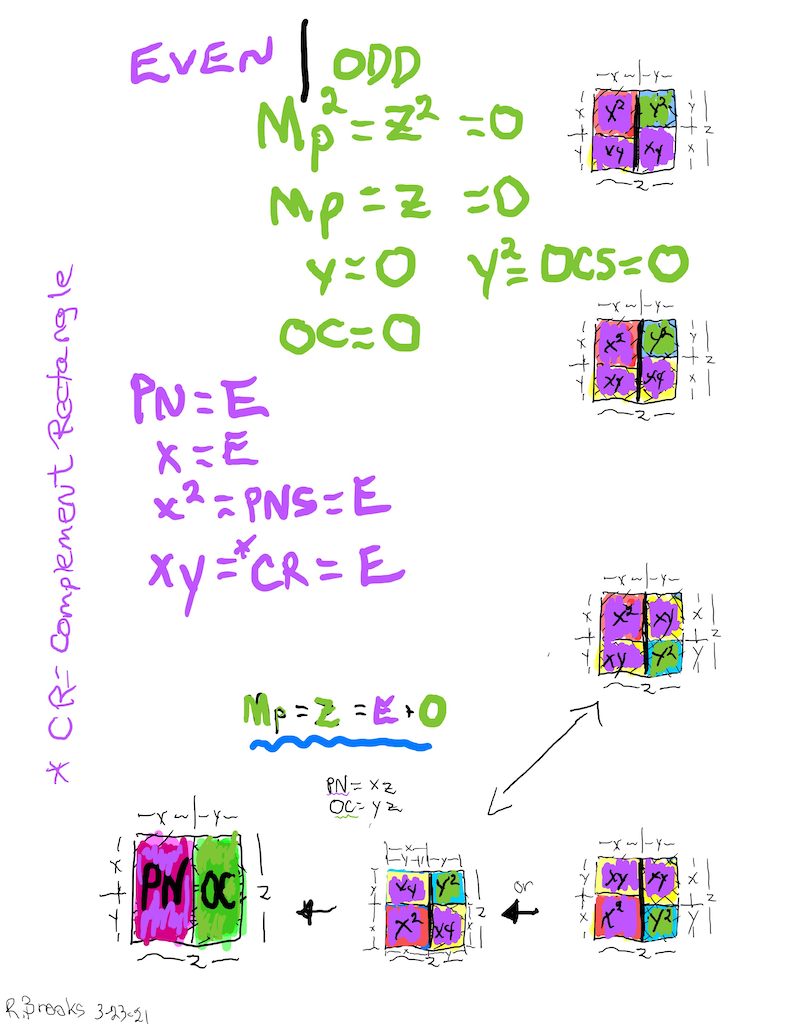 EVEN | ODD
Mp² = Z² = O
Mp = Z = O
y = O y² = OCS = O
OC = O
PN = E
x = E
x² = PNS = E
xy = *CR = E
* CR = Complement Rectangle
Mp = Z = E + O
PN = xz
OC = yz
x y
x² y²
xy xy
x y
y x
z
z
x y
x² y²
xy xy
x y
y x
z
z
x y
x² xy
xy y²
x x
y y
z
z
x y
PN OC
x
y
z
z
x
y
xy y²
x² xy
y
x
z
x y
z
or
x y
xy xy
x² y²
y x
x y
z
z
R. Brooks 3-23-21